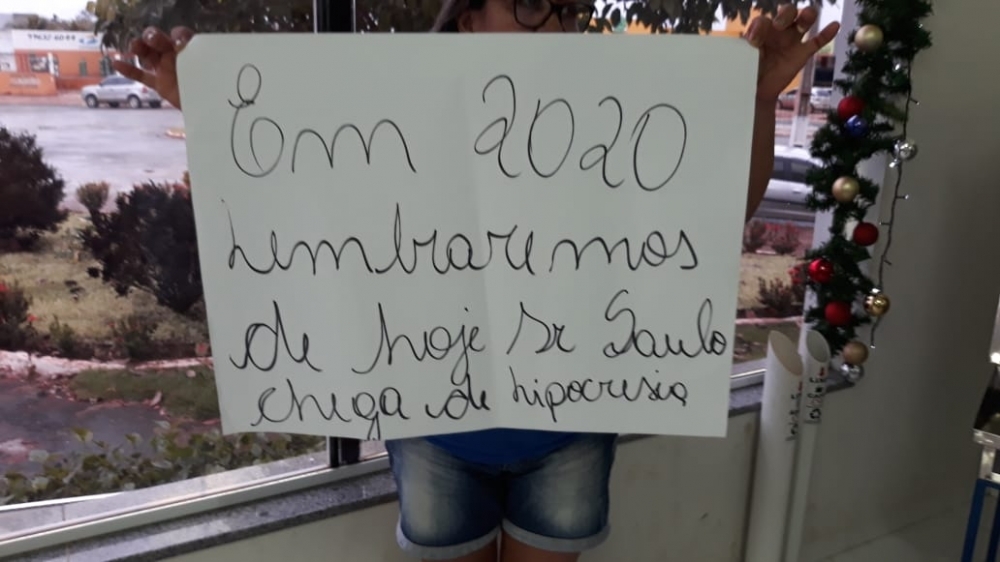 Em 2020
Lembraremos
de hoje Sr Saulo
chega de hipocresia